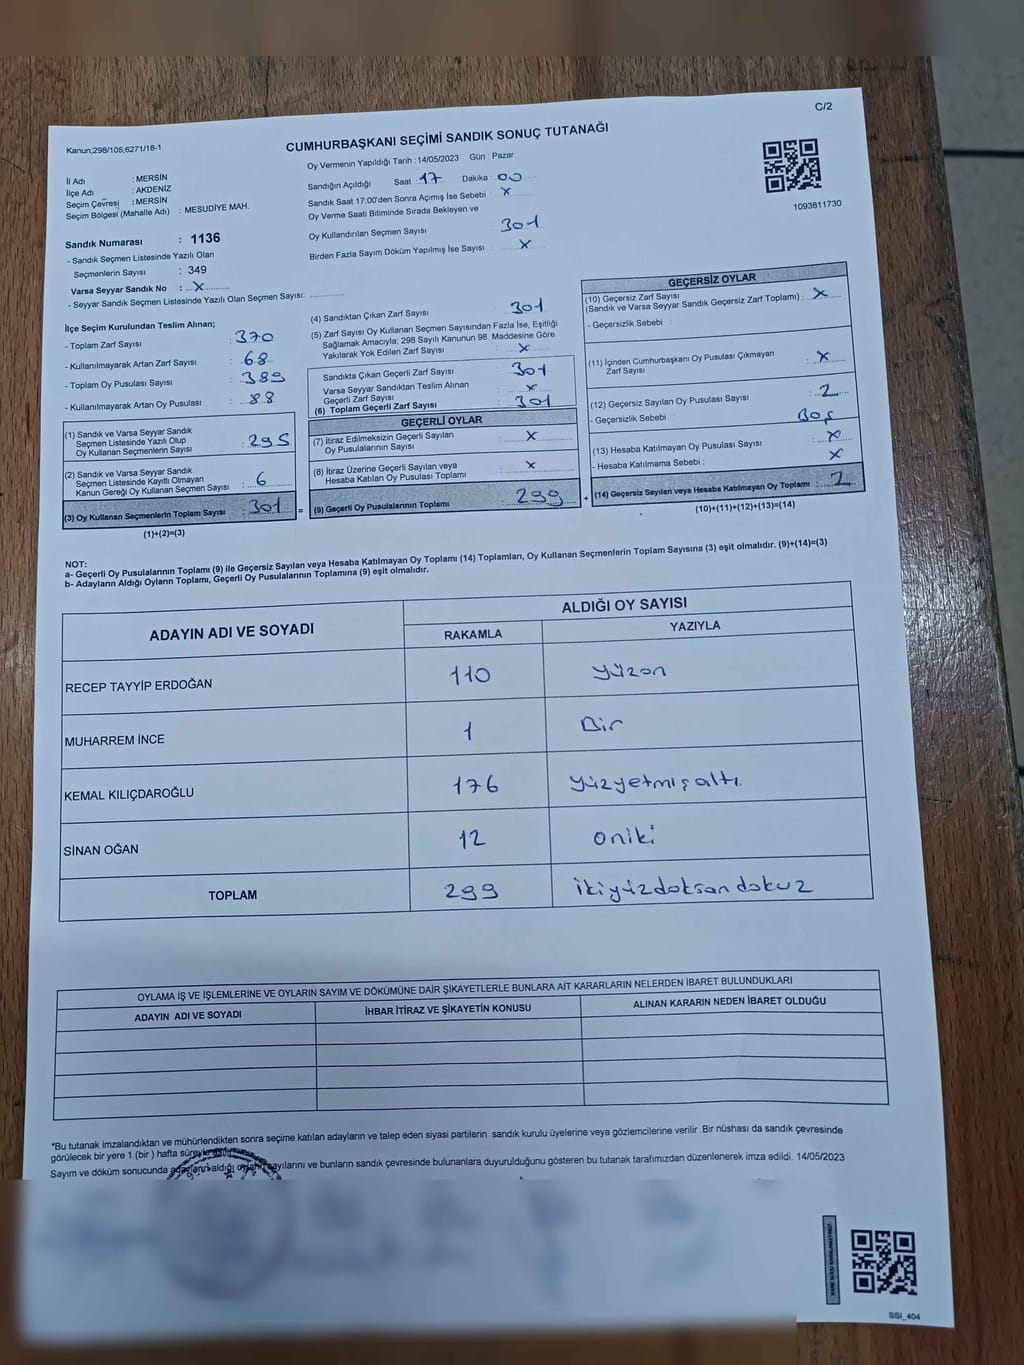 C/2
Kanun;298/105;6271/18-1
CUMHURBAŞKANI SEÇİMİ SANDIK SONUÇ TUTANAĞI
Oy Vermenin Yapıldığı Tarih : 14/05/2023 Gün : Pazar
İl Adı : MERSİN
İlçe Adı : AKDENİZ
Seçim Çevresi : MERSİN
Seçim Bölgesi (Mahalle Adı) : MESUDİYE MAH.
Sandığın Açıldığı Saat : 17 Dakika : 00
Sandık Saat 17:00'den Sonra Açımış İse Sebebi : X
Oy Verme Saati Bitiminde Sırada Bekleyen ve
Oy Kullandırılan Seçmen Sayısı : 301
Birden Fazla Sayım Döküm Yapılmış İse Sayısı : X
1093811730
Sandık Numarası : 1136
- Sandık Seçmen Listesinde Yazılı Olan
Seçmenlerin Sayısı : 349
Varsa Seyyar Sandık No : X
- Seyyar Sandık Seçmen Listesinde Yazılı Olan Seçmen Sayısı:
İlçe Seçim Kurulundan Teslim Alınan;
- Toplam Zarf Sayısı : 370
- Kullanılmayarak Artan Zarf Sayısı : 68
- Toplam Oy Pusulası Sayısı : 389
- Kullanılmayarak Artan Oy Pusulası : 88
(1) Sandık ve Varsa Seyyar Sandık
Seçmen Listesinde Yazılı Olup
Oy Kullanan Seçmenlerin Sayısı : 295
(2) Sandık ve Varsa Seyyar Sandık
Seçmen Listesinde Kayıtlı Olmayan
Kanun Gereği Oy Kullanan Seçmen Sayısı : 6
(3) Oy Kullanan Seçmenlerin Toplam Sayısı : 301
(1)+(2)=(3)
(4) Sandıktan Çıkan Zarf Sayısı : 301
(5) Zarf Sayısı Oy Kullanan Seçmen Sayısından Fazla İse, Eşitliği
Sağlamak Amacıyla; 298 Sayılı Kanunun 98. Maddesine Göre
Yakılarak Yok Edilen Zarf Sayısı : X
Sandıkta Çıkan Geçerli Zarf Sayısı : 301
Varsa Seyyar Sandıktan Teslim Alınan
Geçerli Zarf Sayısı : X
(6) Toplam Geçerli Zarf Sayısı : 301
GEÇERLİ OYLAR
(7) İtiraz Edilmeksizin Geçerli Sayılan
Oy Pusulalarının Sayısı : X
(8) İtiraz Üzerine Geçerli Sayılan veya
Hesaba Katılan Oy Pusulası Toplamı : X
= (9) Geçerli Oy Pusulalarının Toplamı : 299
GEÇERSİZ OYLAR
(10) Geçersiz Zarf Sayısı
(Sandık ve Varsa Seyyar Sandık Geçersiz Zarf Toplamı) : X
- Geçersizlik Sebebi :
(11) İçinden Cumhurbaşkanı Oy Pusulası Çıkmayan
Zarf Sayısı : X
(12) Geçersiz Sayılan Oy Pusulası Sayısı : 2
- Geçersizlik Sebebi : Boş
(13) Hesaba Katılmayan Oy Pusulası Sayısı : X
- Hesaba Katılmama Sebebi : X
+ (14) Geçersiz Sayılan veya Hesaba Katılmayan Oy Toplamı : 2
(10)+(11)+(12)+(13)=(14)
NOT:
a- Geçerli Oy Pusulalarının Toplamı (9) ile Geçersiz Sayılan veya Hesaba Katılmayan Oy Toplamı (14) Toplamları, Oy Kullanan Seçmenlerin Toplam Sayısına (3) eşit olmalıdır. (9)+(14)=(3)
b- Adayların Aldığı Oyların Toplamı, Geçerli Oy Pusulalarının Toplamına (9) eşit olmalıdır.
ADAYIN ADI VE SOYADI
ALDIĞI OY SAYISI
RAKAMLA YAZIYLA
RECEP TAYYİP ERDOĞAN 110 yüzon
MUHARREM İNCE 1 Bir
KEMAL KILIÇDAROĞLU 176 yüzyetmişaltı.
SİNAN OĞAN 12 oniki
TOPLAM 299 ikiyüzdoksandokuz
OYLAMA İŞ VE İŞLEMLERİNE VE OYLARIN SAYIM VE DÖKÜMÜNE DAİR ŞİKAYETLERLE BUNLARA AİT KARARLARIN NELERDEN İBARET BULUNDUKLARI
ADAYIN ADI VE SOYADI İHBAR İTİRAZ VE ŞİKAYETİN KONUSU ALINAN KARARIN NEDEN İBARET OLDUĞU
*Bu tutanak imzalandıktan ve mühürlendikten sonra seçime katılan adayların ve talep eden siyasi partilerin sandık kurulu üyelerine veya gözlemcilerine verilir .Bir nüshası da sandık çevresinde
görülecek bir yere 1 (bir ) hafta süreyle
Sayım ve döküm sonucunda adayların aldığı oy sayılarını ve bunların sandık çevresinde bulunanlara duyurulduğunu gösteren bu tutanak tarafımızdan düzenlenerek imza edildi. 14/05/2023
SSI_404